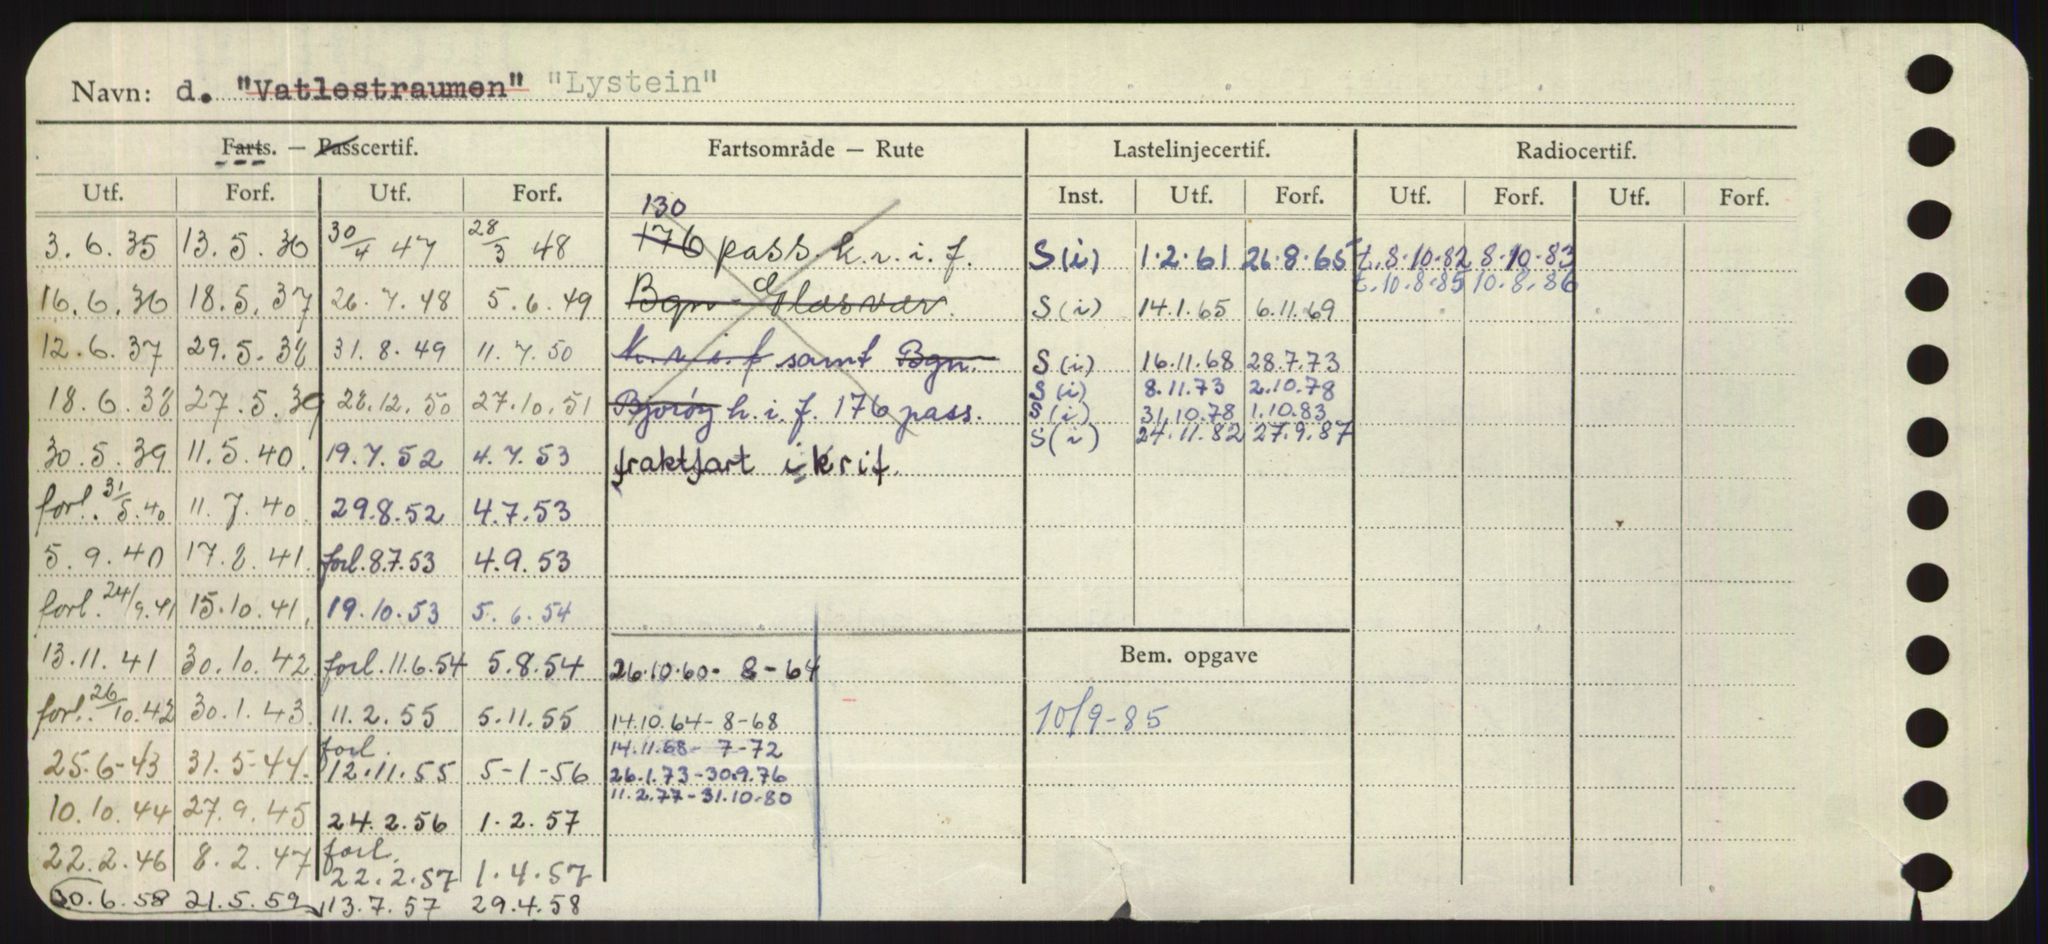 Navn: d. "Vatlestraumen" "Lystein"
Farts. — Passcertif. Fartsområde — Rute Lastelinjecertif. Radiocertif.
Utf. Forf. Utf. Forf. Inst. Utf. Forf. Utf. Forf. Utf. Forf.
130
3.6.35 13.5.36 30/4 47 28/3 48 176 pass. k.r.i.f. S(i) 1.2.61 26.8.65 t.8.10.82 8.10.83
t.10.8.85 10.8.86
16.6.36 18.5.37 26.7.48 5.6.49 Bgn - Glesvær. S(i) 14.1.65 6.11.69
12.6.37 29.5.38 31.8.49 11.7.50 k.r.i.f samt Bgn. S(i) 16.11.68 28.7.73
S(i) 8.11.73 2.10.78
18.6.38 27.5.39 28.12.50 27.10.51 Bjorøy k.i.f. 176 pass. S(i) 31.10.78 1.10.83
S(i) 24.11.82 27.9.87
30.5.39 11.5.40. 19.7.52 4.7.53 fraktfart i krif.
forl. 31/5.40 11.7.40. 29.8.52 4.7.53
5.9.40 17.8.41. forl.8.7.53 4.9.53
forl. 24/9.41 15.10.41. 19.10.53 5.6.54
13.11.41 30.10.42 forl.11.6.54 5.8.54 26.10.60- 8-64 Bem. opgave
forl. 26/10.42 30.1.43. 11.2.55 5.11.55 14.10.64-8-68 10/9-85
forl. 14.11.68- 7-72
25.6-43 31.5-44. 12.11.55 5-1-56 26.1.73-30.9.76
11.2.77-31.10.80
10.10.44 27.9.45 24.2.56 1.2.57
forl.
22.2.46 8.2.47 22.2.57 1.4.57
30.6.58 21.5.59 13.7.57 29.4.58